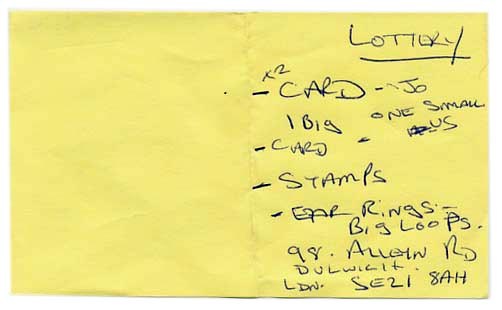 LOTTERY
x2
- CARD - Jo
1 Big ONE SMALL
US
- CARD -
- STAMPS
- EAR RINGS -
BIG LOOPS.
98. ALLEYN RD
DULWICH.
LDN. SE21 8AH